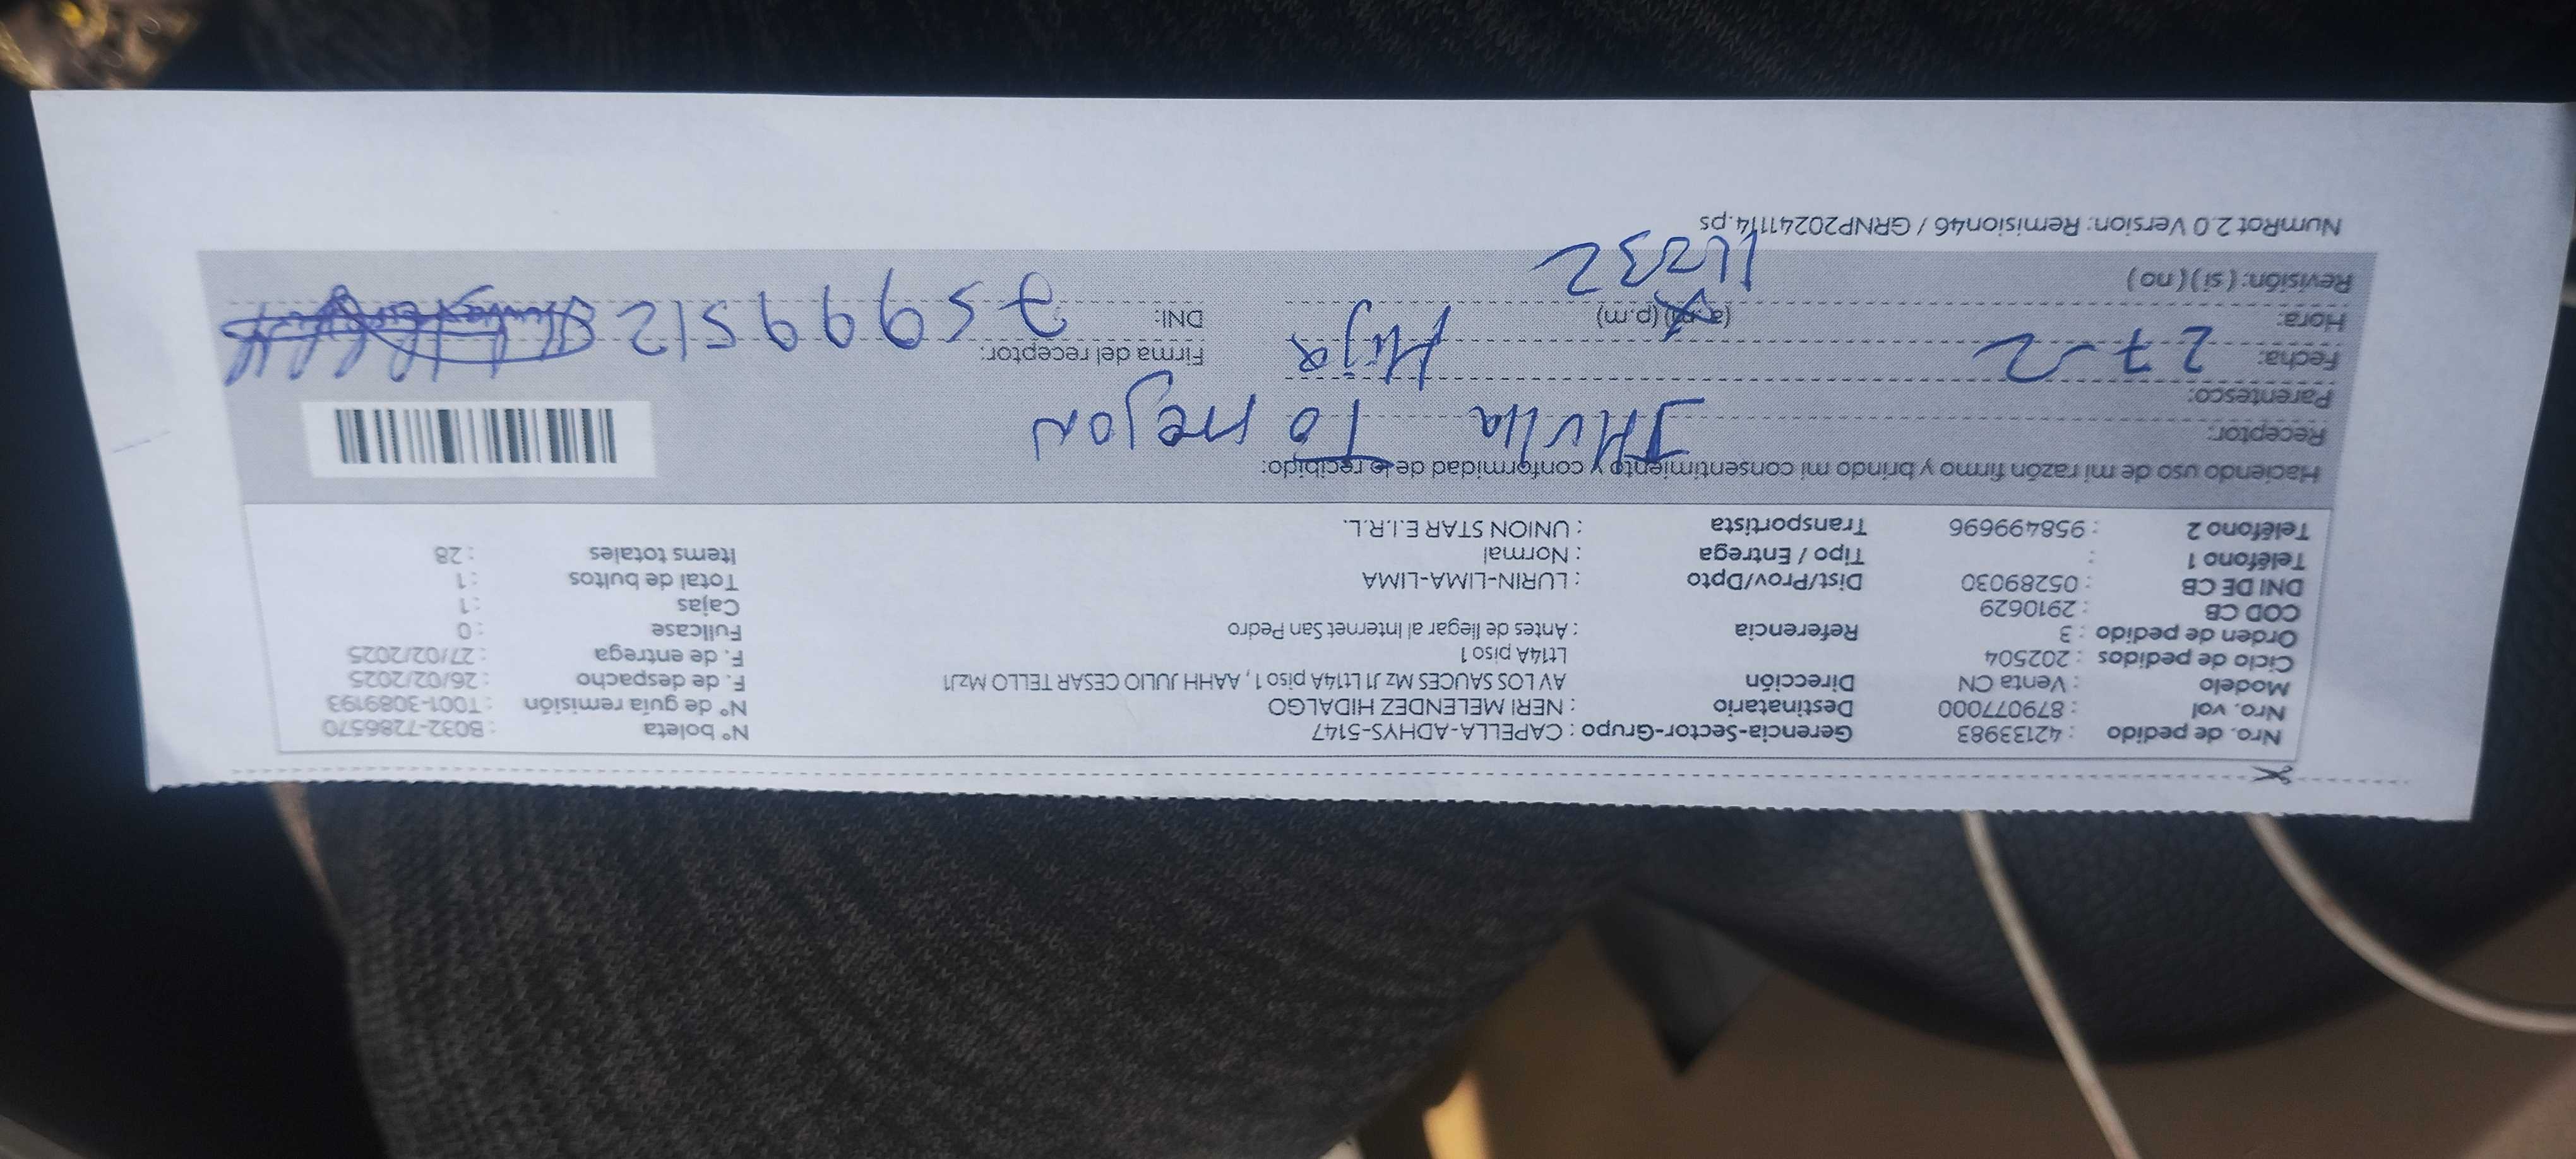 Nro. de pedido : 42133983 Gerencia-Sector-Grupo : CAPELLA-ADHYS-5147 N° boleta : B032-7286570
Nro. vol : 879077000 Destinatario : NERI MELENDEZ HIDALGO N° de guía remisión : T001-3089193
Modelo : Venta CN Dirección AV LOS SAUCES Mz J1 Lt14A piso 1, AAHH JULIO CESAR TELLO MzJ1 F. de despacho : 26/02/2025
Ciclo de pedidos : 202504 Lt14A piso 1 F. de entrega : 27/02/2025
Orden de pedido : 3 Referencia : Antes de llegar al Internet San Pedro Fullcase : 0
COD CB : 2910629 Cajas : 1
DNI DE CB : 05289030 Dist/Prov/Dpto : LURIN-LIMA-LIMA Total de bultos : 1
Teléfono 1 : Tipo / Entrega : Normal Items totales : 28
Teléfono 2 : 958499696 Transportista : UNION STAR E.I.R.L.
Haciendo uso de mi razón firmo y brindo mi consentimiento y conformidad de lo recibido:
Receptor:
Parentesco: Hija
Fecha: 27-2 Firma del receptor:
Hora: 11:32 (a.m) (p.m) DNI: 75999512
Revisión: ( si ) ( no )
NumRot 2.0 Version: Remision46 / GRNP20241114.ps